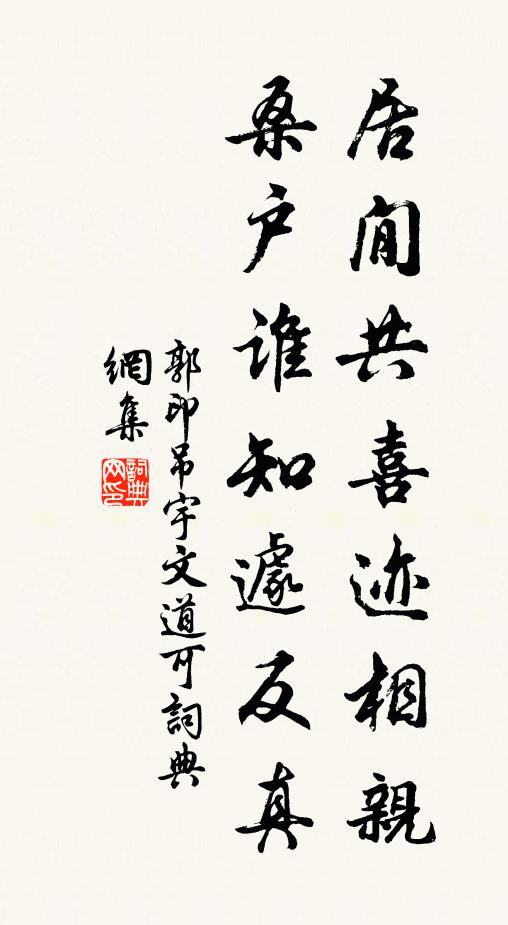 居閒共喜迹相親
桑戶誰知遽反真
郭印吊宇文道可詞典
網集
詞典
网印